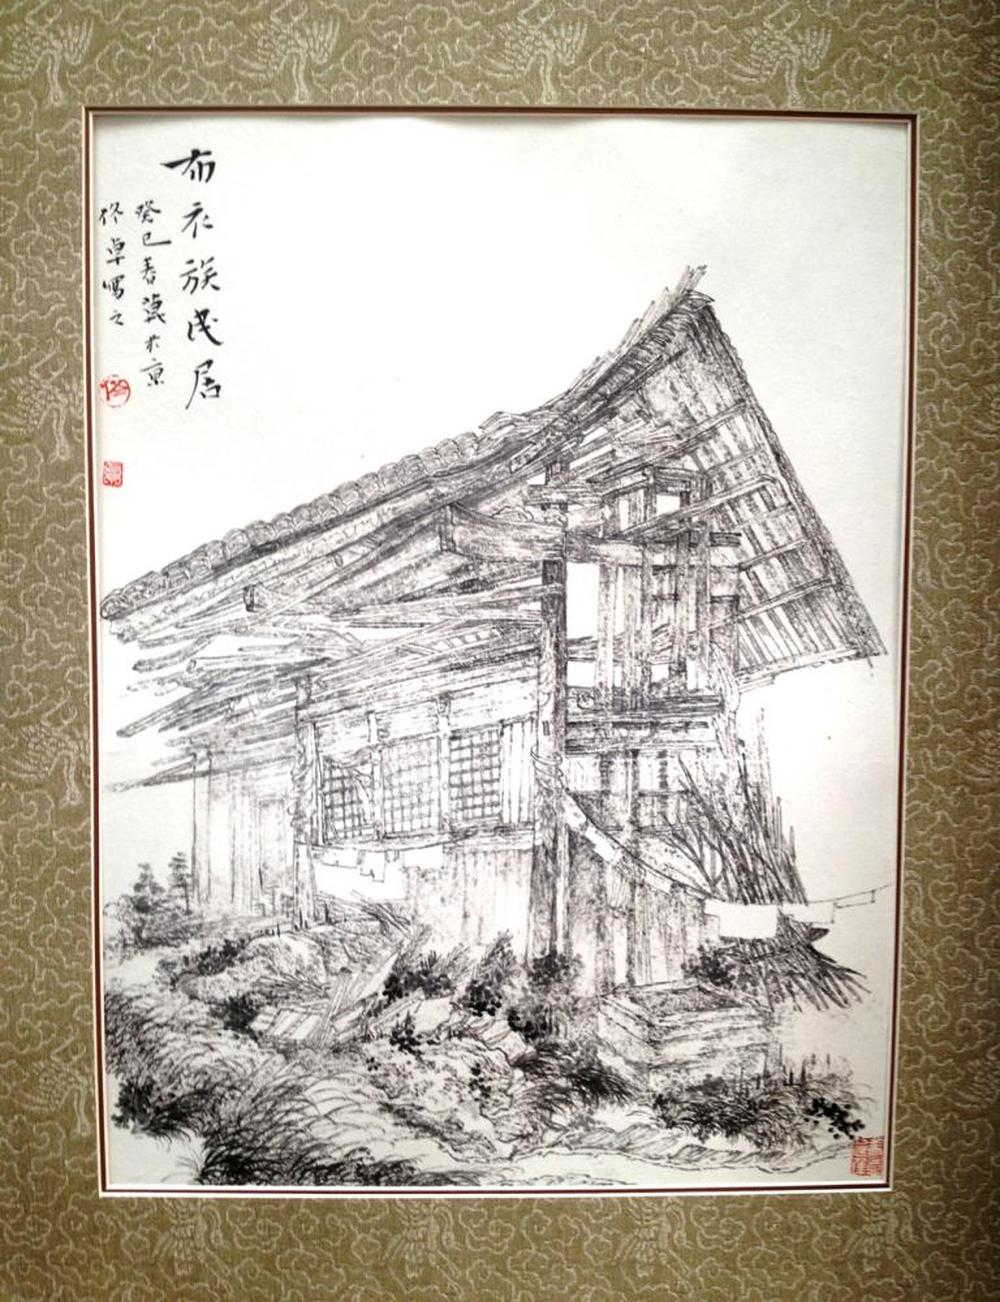 布衣族民居
癸巳春㵎於京
佟卓寫之